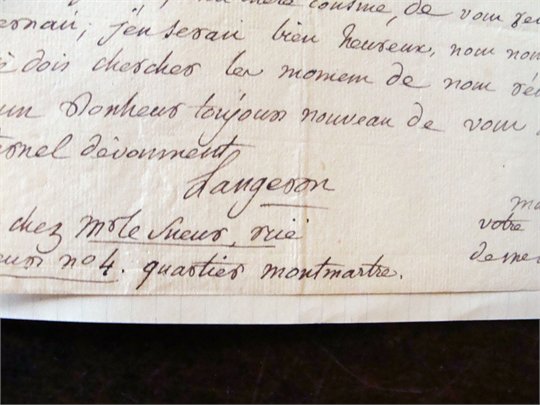 chere cousine, de vous re
ernai; j'en serai bien heureux, nous nou
dois chercher les momens de nous ré
un Bonheur toujours nouveau de vous
ernel dévoument
Langeron
ma
chez Mr le Sueur, ruë
votre
eurs no 4. quartier montmartre.
demeu